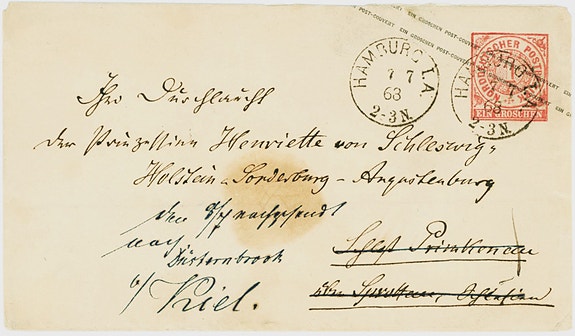 EIN GROSCHEN POST-COUVERT EIN GROSCHEN POST-COUVERT
HAMBURG I.A.
7 7
68
2-3 N.
HAMBURG I.A.
7 7
68
2-3 N.
NORDDEUTSCHER POSTBEZIRK
1
EIN GROSCHEN
Ihro Durchlaucht
der Prinzessinn Henriette von Schleswig-
Holstein-Sonderburg-Augustenburg
Schloß Primkenau
bei Sprottau, Schlesien
nachgesandt
nach
Düsternbrook
b/ Kiel.